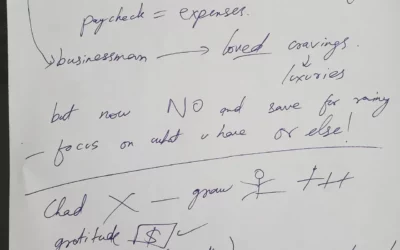 paycheck = expenses.
→ businessman → loved cravings.
↓
luxuries
but now NO and save for rainy
– focus on what u have or else!
Chad X – grow
gratitude [$] ✓